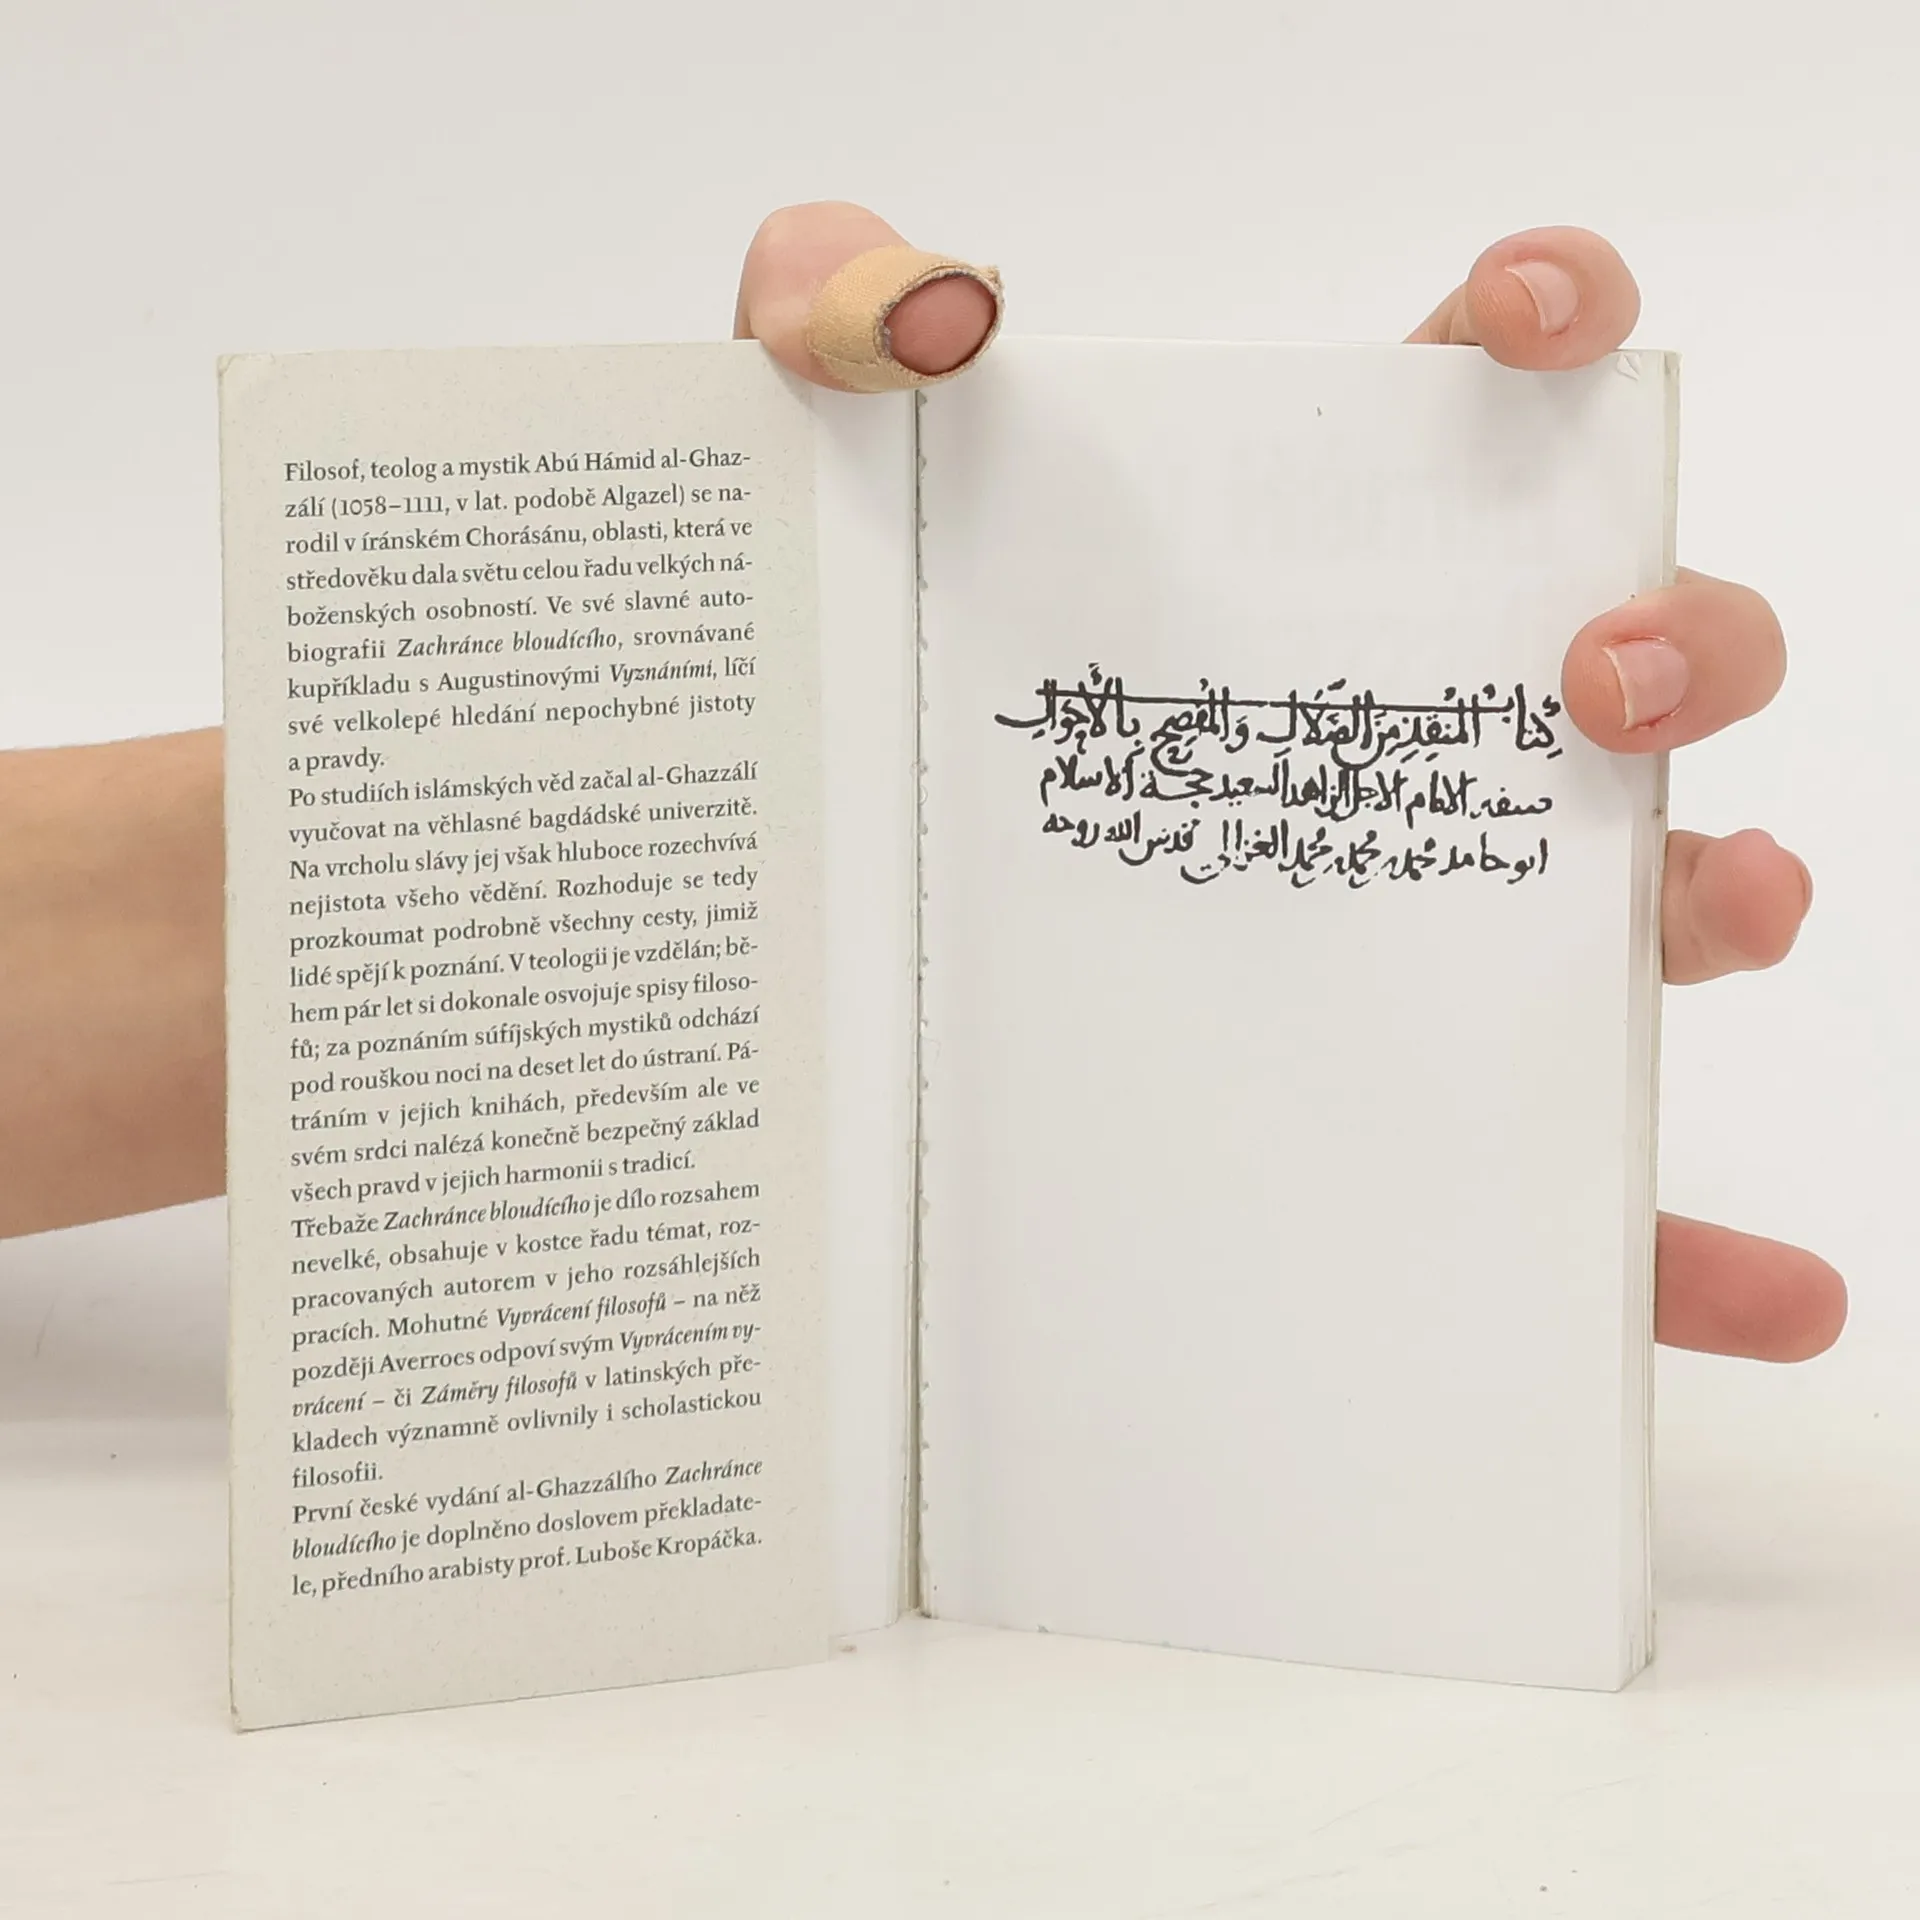 Filosof, teolog a mystik Abú Hámid al-Ghaz-
zálí (1058–1111, v lat. podobě Algazel) se na-
rodil v íránském Chorásánu, oblasti, která ve
středověku dala světu celou řadu velkých ná-
boženských osobností. Ve své slavné auto-
biografii Zachránce bloudícího, srovnávané
kupříkladu s Augustinovými Vyznáními, líčí
své velkolepé hledání nepochybné jistoty
a pravdy.
Po studiích islámských věd začal al-Ghazzálí
vyučovat na věhlasné bagdádské univerzitě.
Na vrcholu slávy jej však hluboce rozechvívá
nejistota všeho vědění. Rozhoduje se tedy
prozkoumat podrobně všechny cesty, jimiž
lidé spějí k poznání. V teologii je vzdělán; bě-
hem pár let si dokonale osvojuje spisy filoso-
fů; za poznáním súfíjských mystiků odchází
pod rouškou noci na deset let do ústraní. Pá-
tráním v jejich knihách, především ale ve
svém srdci nalézá konečně bezpečný základ
všech pravd v jejich harmonii s tradicí.
Třebaže Zachránce bloudícího je dílo rozsahem
nevelké, obsahuje v kostce řadu témat, roz-
pracovaných autorem v jeho rozsáhlejších
pracích. Mohutné Vyvrácení filosofů – na něž
později Averroes odpoví svým Vyvrácením vy-
vrácení – či Záměry filosofů v latinských pře-
kladech významně ovlivnily i scholastickou
filosofii.
První české vydání al-Ghazzálího Zachránce
bloudícího je doplněno doslovem překladate-
le, předního arabisty prof. Luboše Kropáčka.
كِتابُ المُنقِذِ مِنَ الضَّلَالِ وَالمُفصِحِ بِالأَحوَالِ
الامام الاجل الزاهد السعيد حجة الاسلام
ابو حامد محمد بن محمد بن محمد الغزالي قدس الله روحه